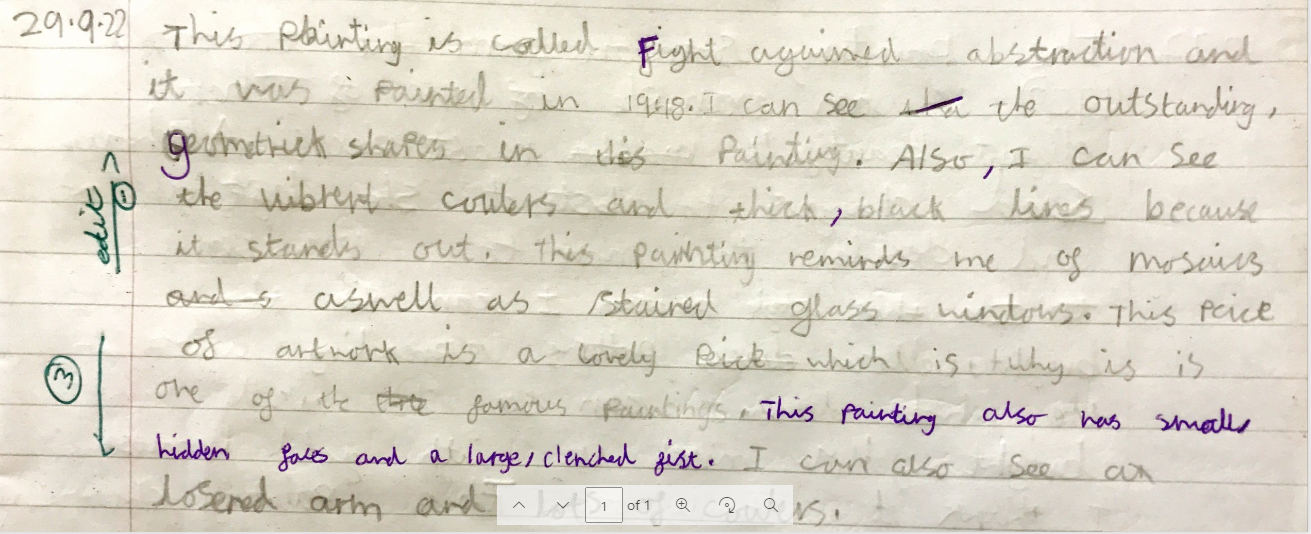 29.9.22
This Painting is called Fight agained abstraction and
it was painted in 1948. I can see the outstanding,
geometrick shapes in this Painting. Also, I can see
the vibrent coulers and thick, black lines because
it stands out. This painting reminds me of mosaics
and s aswell as stained glass windows. This Peice
of artwork is a lovely Peice which is why is is
one of the famous paintings. This painting also has small,
hidden faces and a large, clenched fist. I can also see an
losered arm and lots of coulers.
edit
1
3
1 of 1